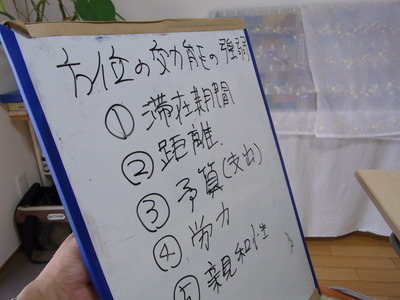 方位の効能の強弱
① 滞在期間
② 距離
③ 予算(支出)
④ 労力
⑤ 親和性